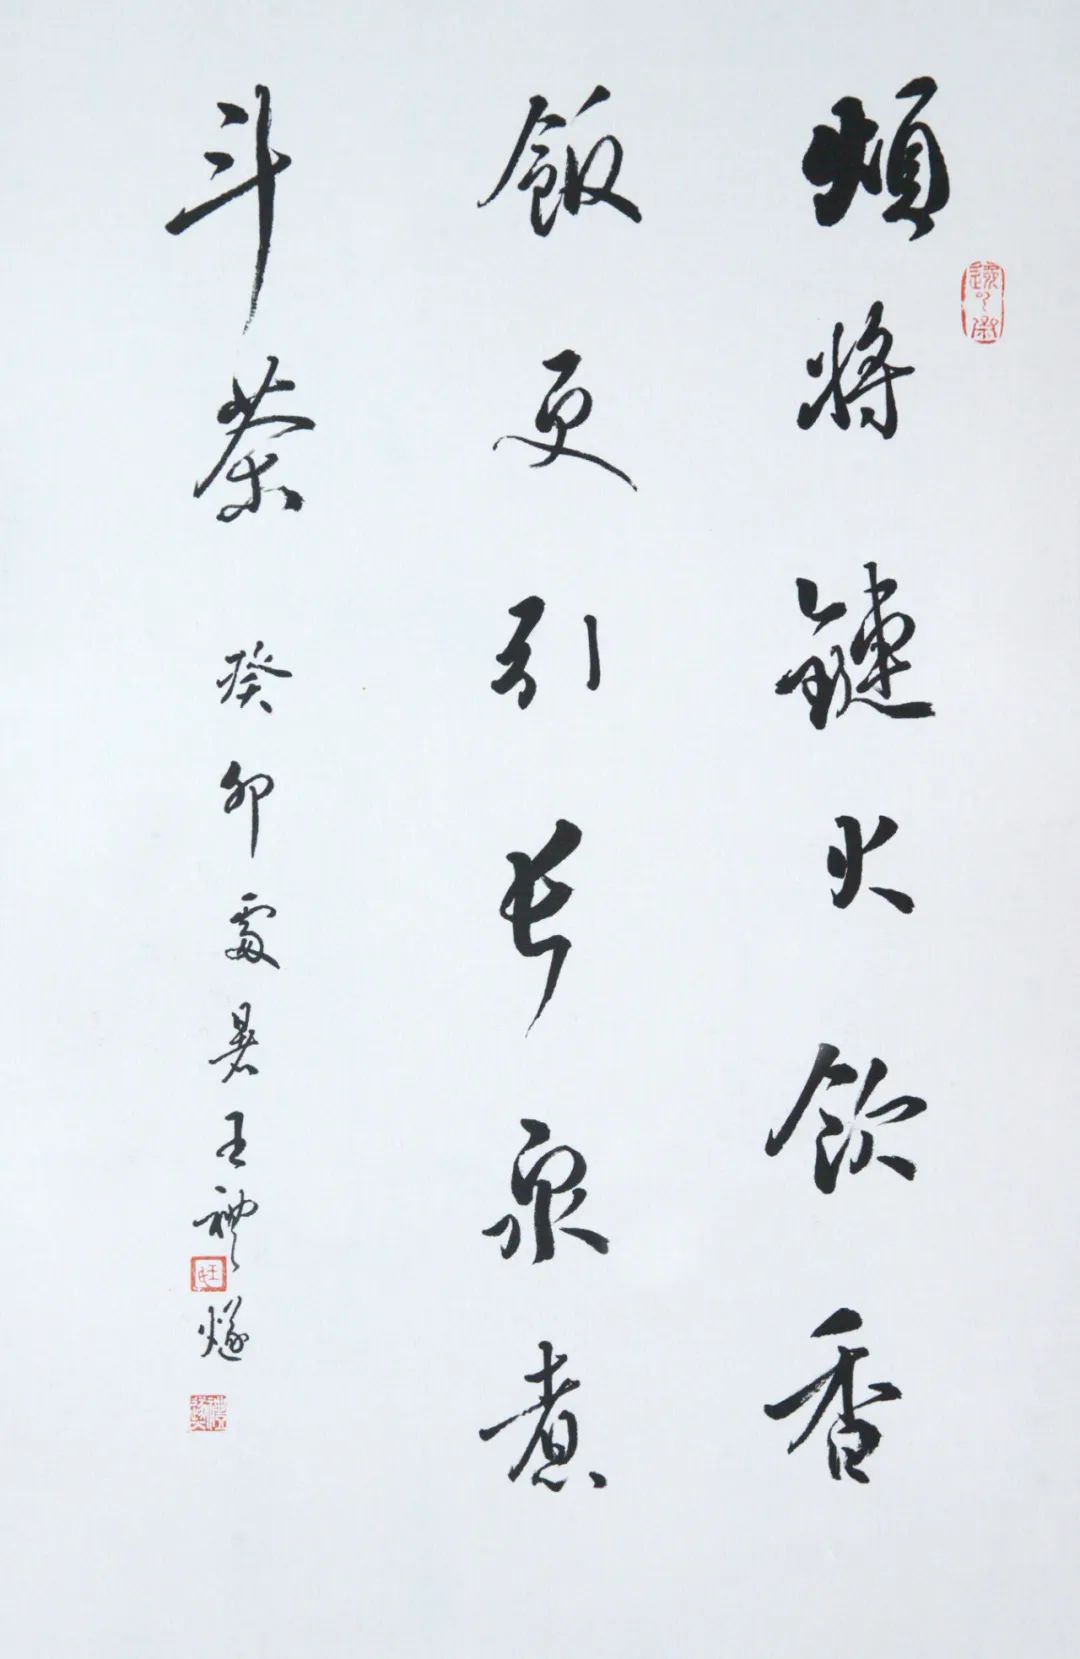 頻將鏈火飲香
飯更引長泉煮
斗茶
癸卯處暑王禮燧